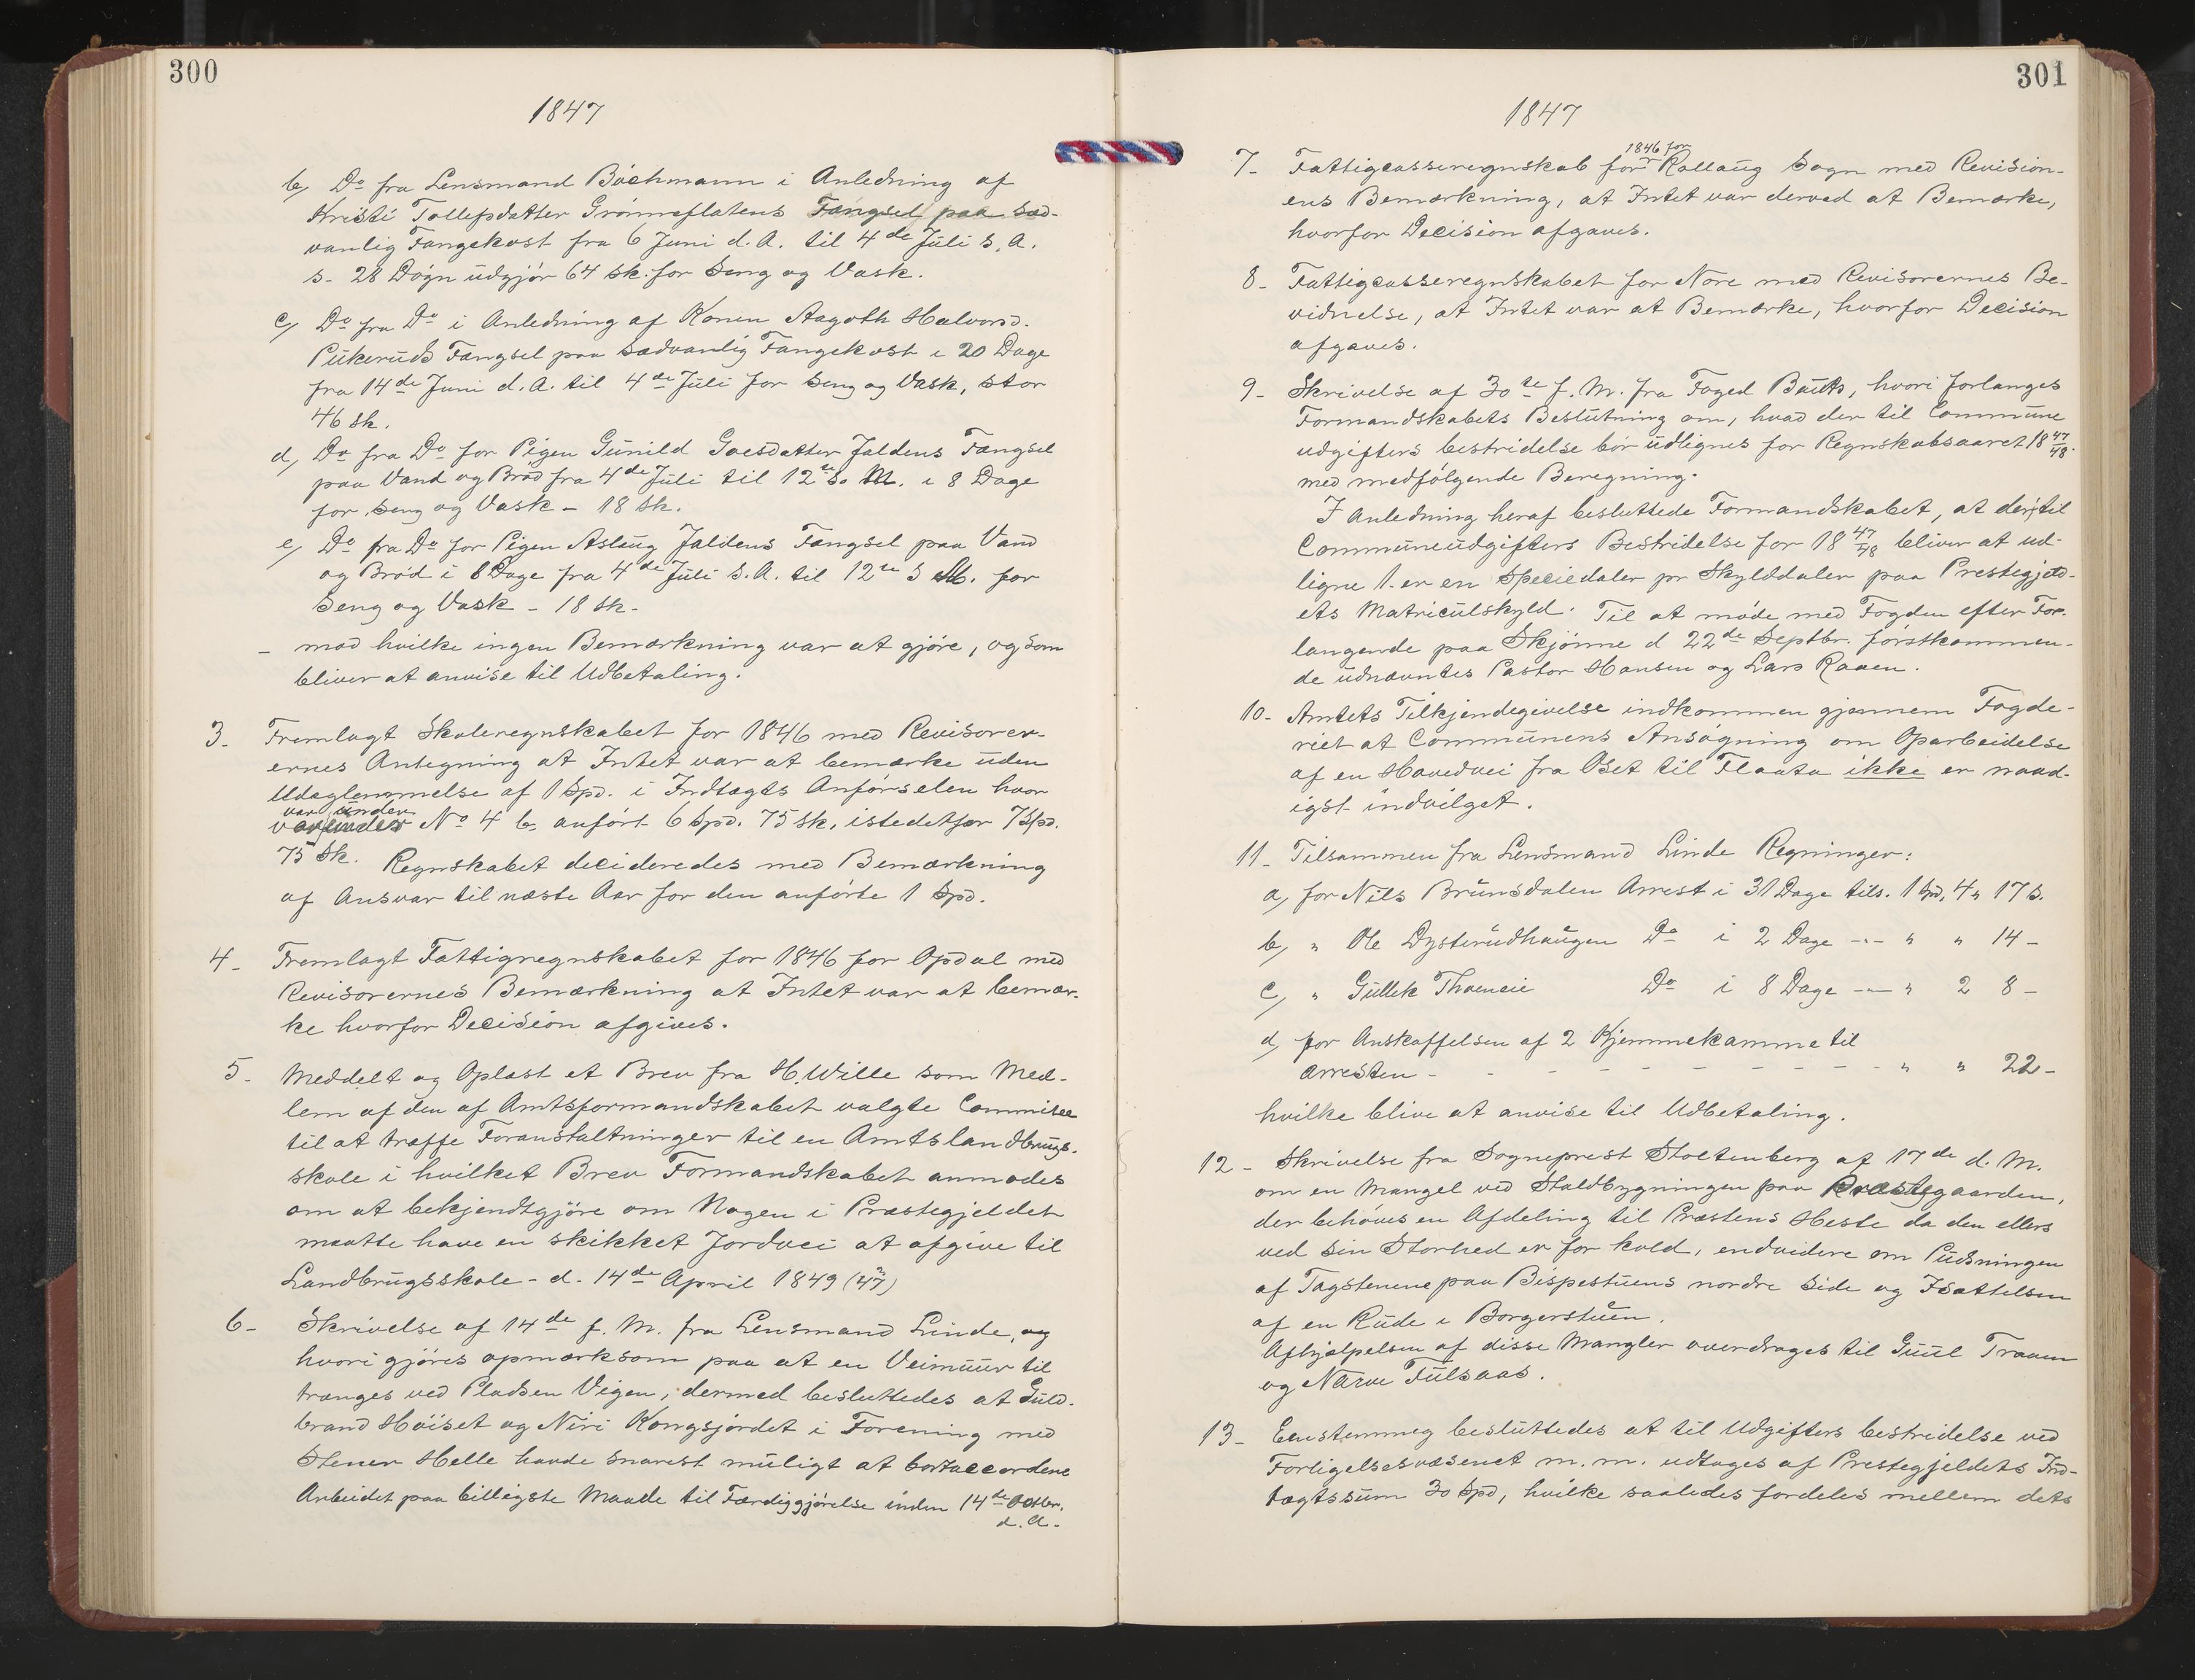 300
1847
b, Do fra Lensmand Böchmann i Anledning af
Kristi Tollefsdatter Grönneflatens Fængsel paa sæd-
vanlig Fangekost fra 6 Juni d. A. til 4de Juli s. A.
s. 28 Døgn udgjör 64 sk. for Seng og Vask.
c, Do fra Do i Anledning af Konen Aagoth Halvorsd.
Pükeruds Fængsel paa sædvanlig Fangekost i 20 Dage
fra 14de Juni d. A. til 4de Juli for Seng og Vask, stor
46 sk.
d, Do fra Do for Pigen Günild Goesdatter Jaldens Fængsel
paa Vand og Bröd fra 4de Juli til 12te s. M. i 8 Dage
for Seng og Vask - 18 sk.
e, Do fra Do for Pigen Aslaug Jaldens Fængsel paa Vand
og Bröd i 8 Dage fra 4de Juli s. A. til 12te s M. for
Seng og Vask - 18 sk-
- mod hvilke ingen Bemærkning var at gjöre, og som
bliver at anvise til Udbetaling.
3- Fremlagt Skoleregnskabet for 1846 med Revisorer-
ernes Antegning at Intet var at bemærke uden
Udeglemmelse af 1 Spd. i Indtægts Anförselen hvor
var under
No 4 b, anfört 6 Spd. 75 sk. istedetfor 7 Spd.
75 sk. Regnskabet decideredes med Bemærkning
af Ansvar til næste Aar for den anförte 1 Spd.
4- Fremlagt Fattigregnskabet for 1846 for Opdal med
Revisorernes Bemærkning at Intet var at bemær-
ke hvorfor Decision afgives.
5- Meddelt og Oplæst et Brev fra H. Wille som Med-
lem af den af Amtsformandskabet valgte Commitee
til at træffe Foranstaltninger til en Amtslandbrugs-
skole i hvilket Brev Formandskabet anmodes
om at bekjendtgjöre om Nogen i Præstegjeldet
maatte have en skikket Jordvei at afgive til
Landbrugsskole - d. 14de April 1849 (47)
6- Skrivelse af 14de f. M. fra Lensmand Linde, og
hvori gjöres opmærksom paa at en Veimuur til
trænges ved Pladsen Vigen; dermed besluttedes at Guld-
brand Höiset og Niri Kongsjordet i Forening med
Stener Helle havde snarest muligt at bortaccordere
Arbeidet paa billigste Maade til Færdiggjörelse inden 14de Octbr.
d. A.
301
1847
1846 for
7- Fattigcasseregnskab for Rollaug Sogn med Revision-
ens Bemærkning, at Intet var derved at Bemærke,
hvorfor Decision afgaves.
8- Fattigcasseregnskabet for Nore med Revisorernes Be-
vidnelse, at Intet var at Bemærke, hvorfor Decision
afgaves.
9- Skrivelse af 30te f. M. fra Foged , hvori forlanges
Formandskabets Beslutning om, hvad der til Commune
udgifters bestridelse bör udlignes for Regnskabsaaret 18 47/48.
med medfölgende Beregning.
I Anledning heraf besluttede Formandskabet, at der til
Communeudgifters Bestridelse for 18 47/48 bliver at ud-
ligne 1. er en Speciedaler pr Skylddaler paa Prestegjeld-
ets Matriculskyld. Til at möde med Fogden efter For-
langende paa Skjönne d 22de Septbr. förstkommen-
de udnævntes Pastor Hansen og Lars Raaen.
10- Amtets Tilkjendegivelse indkommen gjennem Fogde-
riet at Communens Ansögning om Oparbeidelse
af en Hovedvei fra Oset til Flaata ikke er naad-
igst indvilget.
11- Tilsammen fra Lensmand Linde Regninger:
a, for Nils Brünsdalen Arrest i 31 Dage tils. 1 Spd. 4" 17 s.
b, " Ole Dysterüdhaugen Do i 2 Dage --- " " 14 -
c, " Gullik Do i 8 Dage --- " 2 8 -
d, for Anskaffelsen af 2 Kjemmekamme til
Arresten - - - - - - - - - - " " 22 -
hvilke blive at anvise til Udbetaling.
12- Skrivelse fra Sogneprest Stoltenberg af 17de d. M.
om en Mangel ved Staldbygningen paa Præstegaarden,
der behöves en Afdeling til Præstens Heste da den ellers
ved sin Storhed er for kold, endvidere om Pudsningen
af Tagstenene paa Bispestuens nordre Side og Isættelsen
af en Rude i Borgerstuen.
Afhjælpelsen af disse Mangler overdrages til Guul Traaen
og Narve Fulsaas.
13- Eenstemmeg besluttedes at til Udgifters bestridelse ved
Forligelsesvæsenet m. m. udtages af Prestegjeldets Ind-
tægtssum 30 Spd, hvilke saaledes fordeles mellem dets